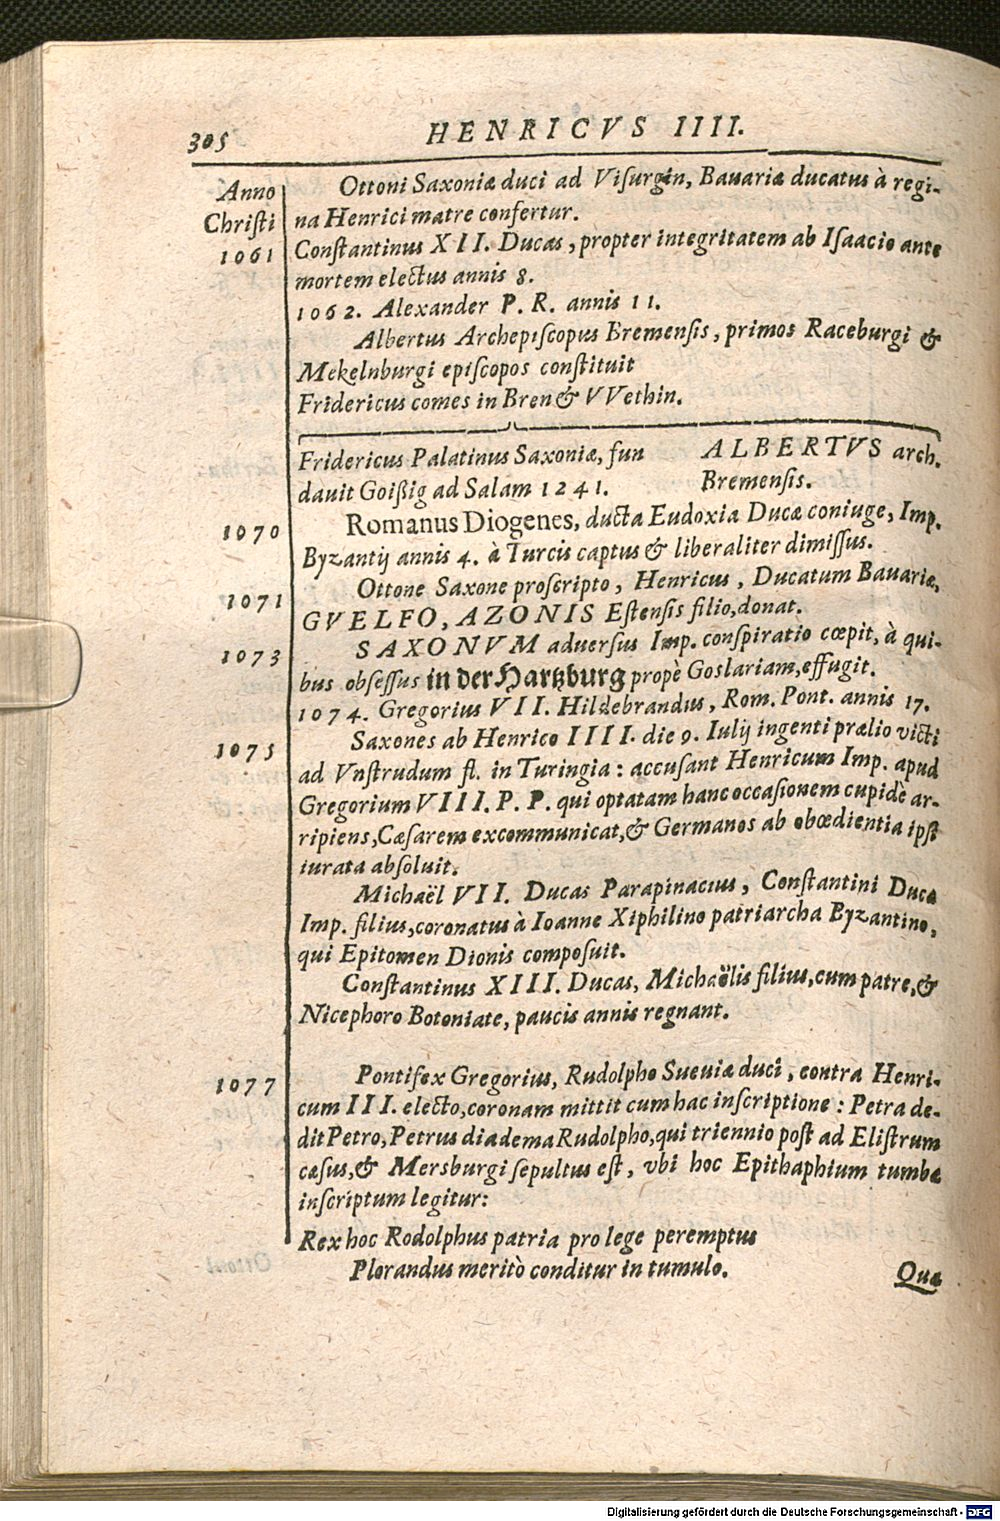 305 HENRICVS IIII.
Anno Ottoni Saxoniæ duci ad Visurgin, Bauariæ ducatus à regi-
Christi na Henrici matre confertur.
1061 Constantinus XII. Ducas, propter integritatem ab Isaacio ante
mortem electus annis 8.
1062. Alexander P. R. annis 11.
Albertus Archepiscopus Bremensis, primos Raceburgi &
Mekelnburgi episcopos constituit
Fridericus comes in Bren & VVethin.
Fridericus Palatinus Saxoniæ, fun ALBERTVS arch.
dauit Goißig ad Salam 1241. Bremensis.
1070 Romanus Diogenes, ducta Eudoxia Ducæ coniuge, Imp.
Byzantij annis 4. à Turcis captus & liberaliter dimissus.
1071 Ottone Saxone proscripto, Henricus, Ducatum Bauariæ,
GVELFO, AZONIS Estensis filio, donat.
1073 SAXONVM aduersus Imp. conspiratio cœpit, à qui-
bus obsessus in der Hartzburg propè Goslariam, effugit.
1074. Gregorius VII. Hildebrandus, Rom. Pont. annis 17.
1075 Saxones ab Henrico IIII. die 9. Iulij ingenti prælio victi
ad Vnstrudum fl. in Turingia: accusant Henricum Imp. apud
Gregorium VIII. P. P. qui optatam hanc occasionem cupidè ar-
ripiens, Cæsarem excommunicat, & Germanos ab obœdientia ipsi
iurata absoluit.
Michaël VII. Ducas Parapinacius, Constantini Ducæ
Imp. filius, coronatus à Ioanne Xiphilino patriarcha Byzantino,
qui Epitomen Dionis composuit.
Constantinus XIII. Ducas, Michaëlis filius, cum patre, &
Nicephoro Botoniate, paucis annis regnant.
1077 Pontifex Gregorius, Rudolpho Sueuiæ duci, contra Henri-
cum III. electo, coronam mittit cum hac inscriptione: Petra de-
dit Petro, Petrus diadema Rudolpho, qui triennio post ad Elistrum
cæsus, & Mersburgi sepultus est, vbi hoc Epithaphium tumbæ
inscriptum legitur:
Rex hoc Rodolphus patria pro lege peremptus
Plorandus meritò conditur in tumulo.
Qua
Digitalisierung gefördert durch die Deutsche Forschungsgemeinschaft - DFG